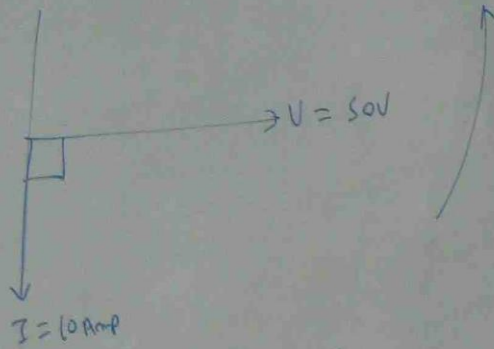 V = 50V
I = 10 Amp